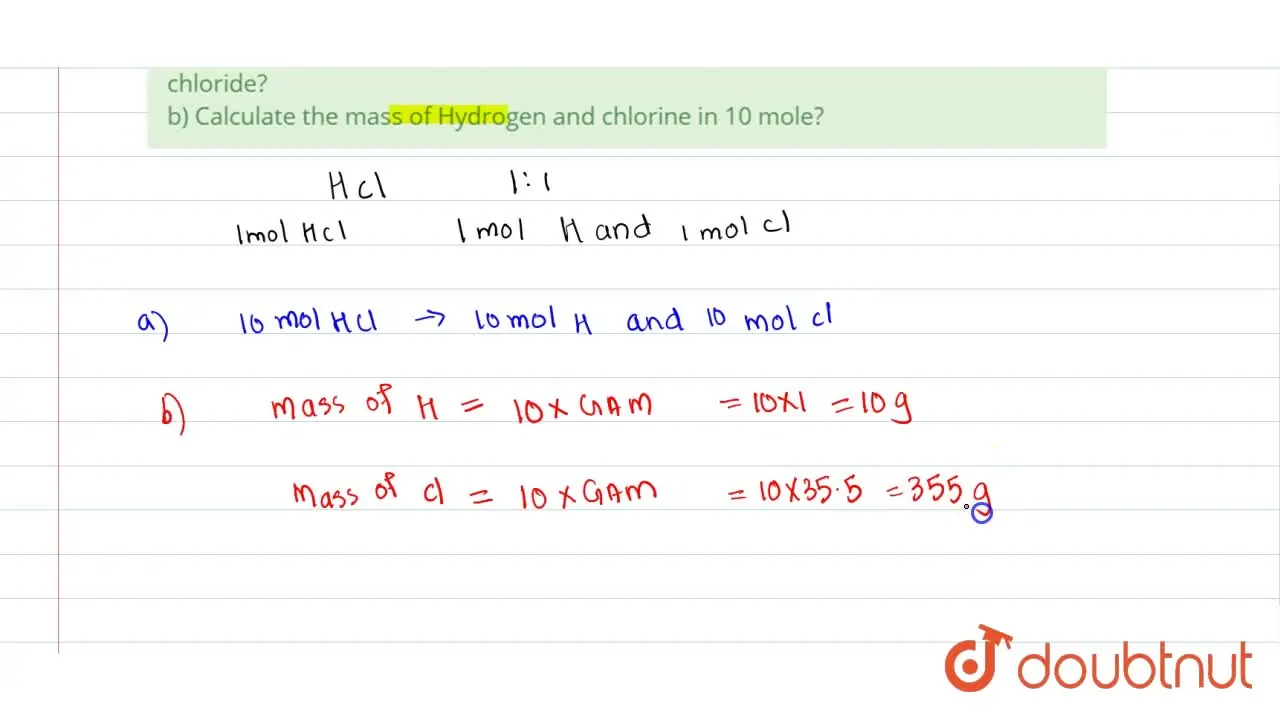 chloride?
b) Calculate the mass of Hydrogen and chlorine in 10 mole?
HCl 1:1
1mol HCl 1 mol H and 1 mol Cl
a) 10 mol HCl → 10 mol H and 10 mol Cl
b) Mass of H = 10 × GAM = 10×1 = 10 g
Mass of Cl = 10 × GAM = 10×35.5 = 355 g
doubtnut